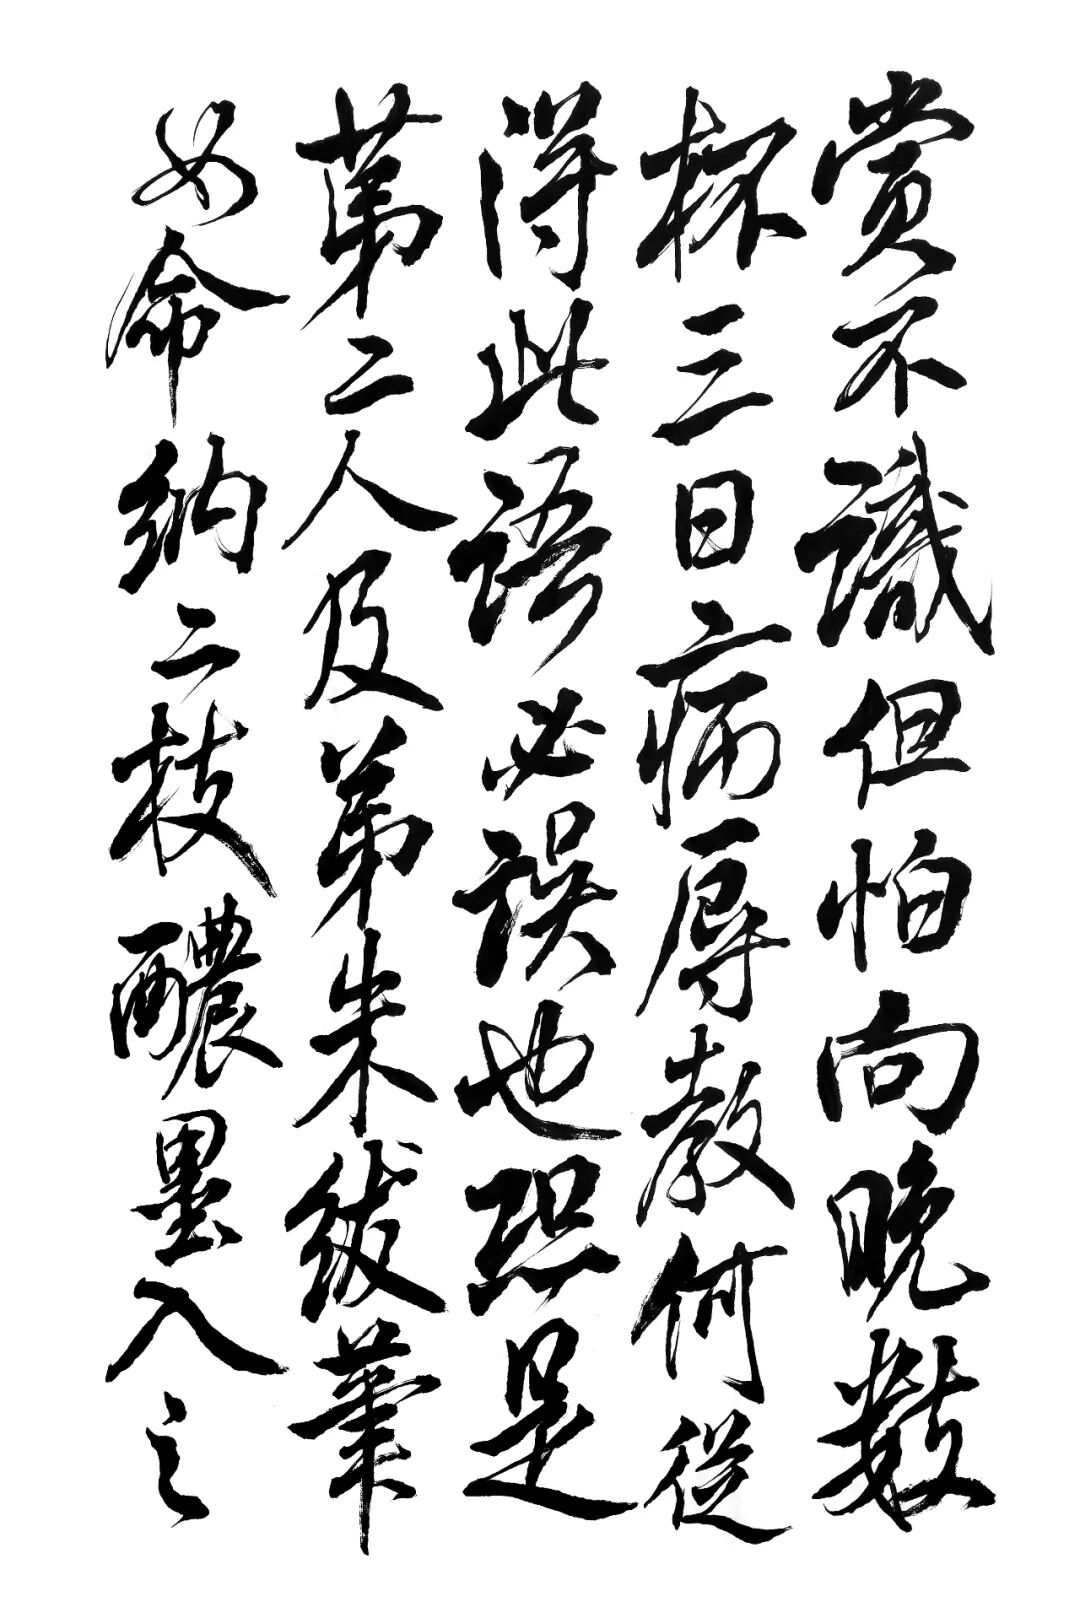 赏不識但怕向晚数
杯三日病辱教何從
得此語必誤也恐是
第二人及弟朱紱筆
如命納二枝醲墨入之